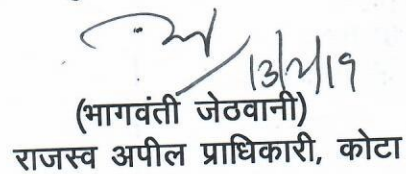 13/2/19
(भागवंती जेठवानी)
राजस्व अपील प्राधिकारी, कोटा